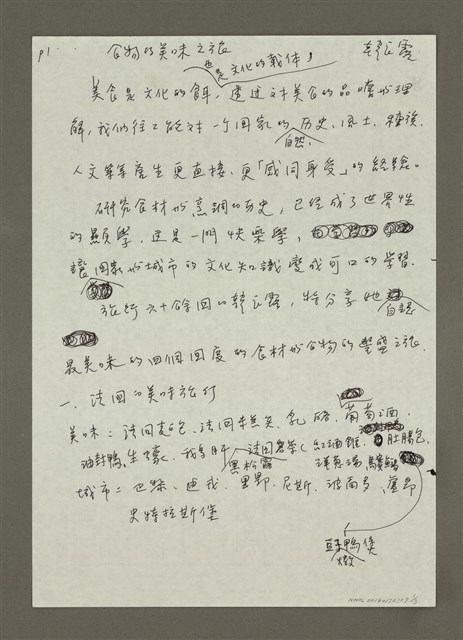 P1. 食物的美味之旅 韓良露
也是文化的載体,
美食是文化的餌,透过对美食的品嚐和理
解,我們往往能对一个国家的历史、風土、種族、
自然、
人文等等產生更直接、更「感同身受」的經驗。
研究食材和烹調的历史,已经成了世界性
的顯學,这是一門快樂學,
讓国家和城市的文化知識變成可口的學習。
旅行六十餘国的韓良露,特分享她
自認
最美味的四個国度的食材和食物的豐盛之旅。
一、法国的美味旅行
美味:法国麵包、法国生蠔、乳酪、葡萄酒、
油封鴨、生蠔、鵝肝、法国名菜(紅酒雞、肚腸包、
黑松露 洋蔥湯、
城市:巴黎、迪戎、里昂、尼斯、波爾多、
史特拉斯堡
豆子鴨煲
燉